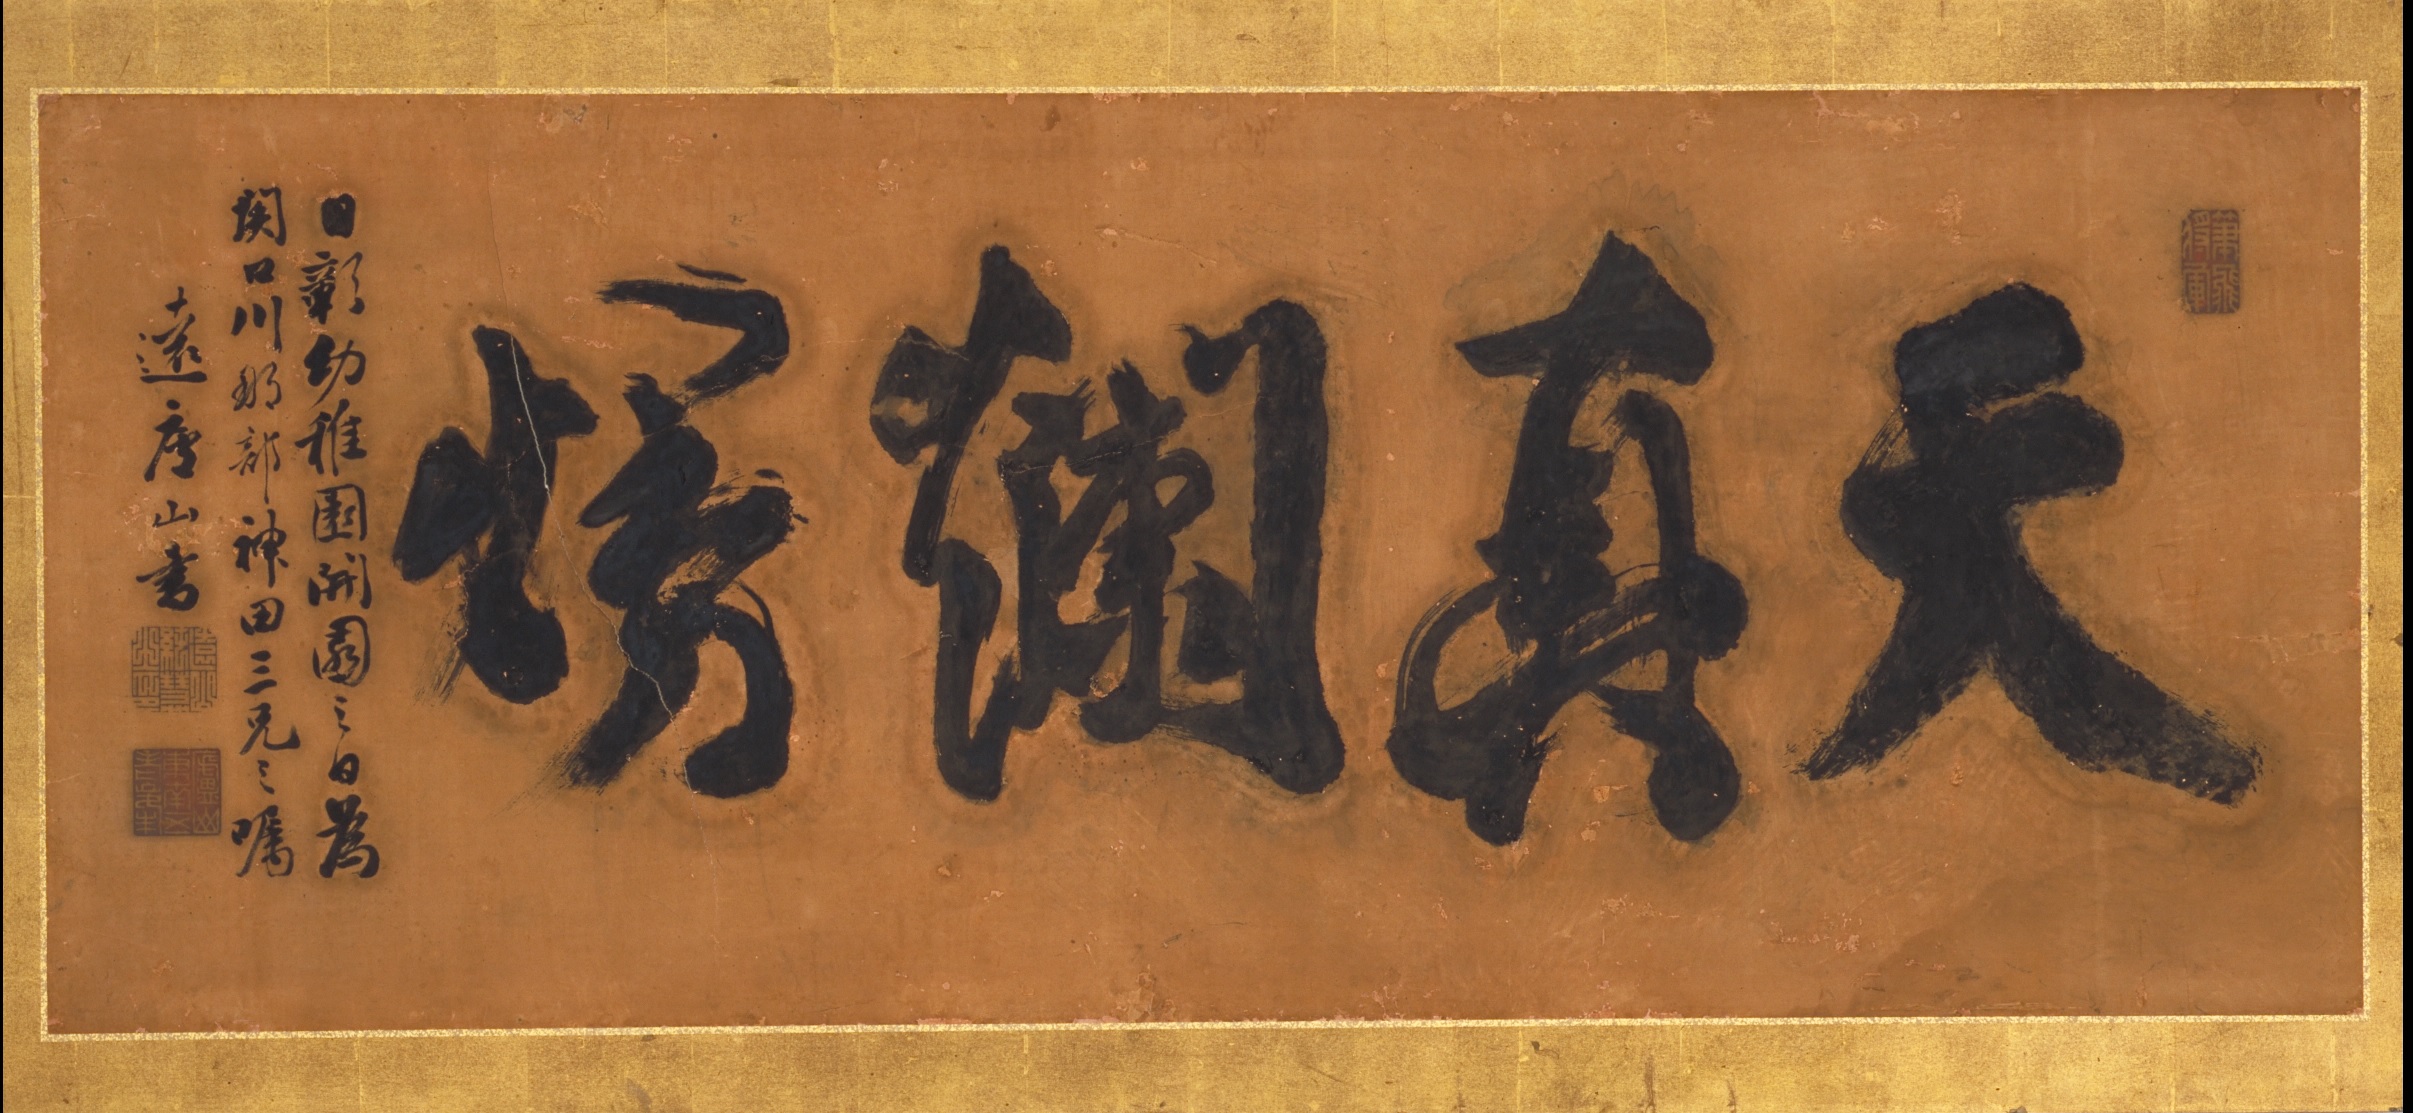 天真爛熳
日彰幼稚園開園之日為
関口川那部神田三兄之嘱
遠唐山書